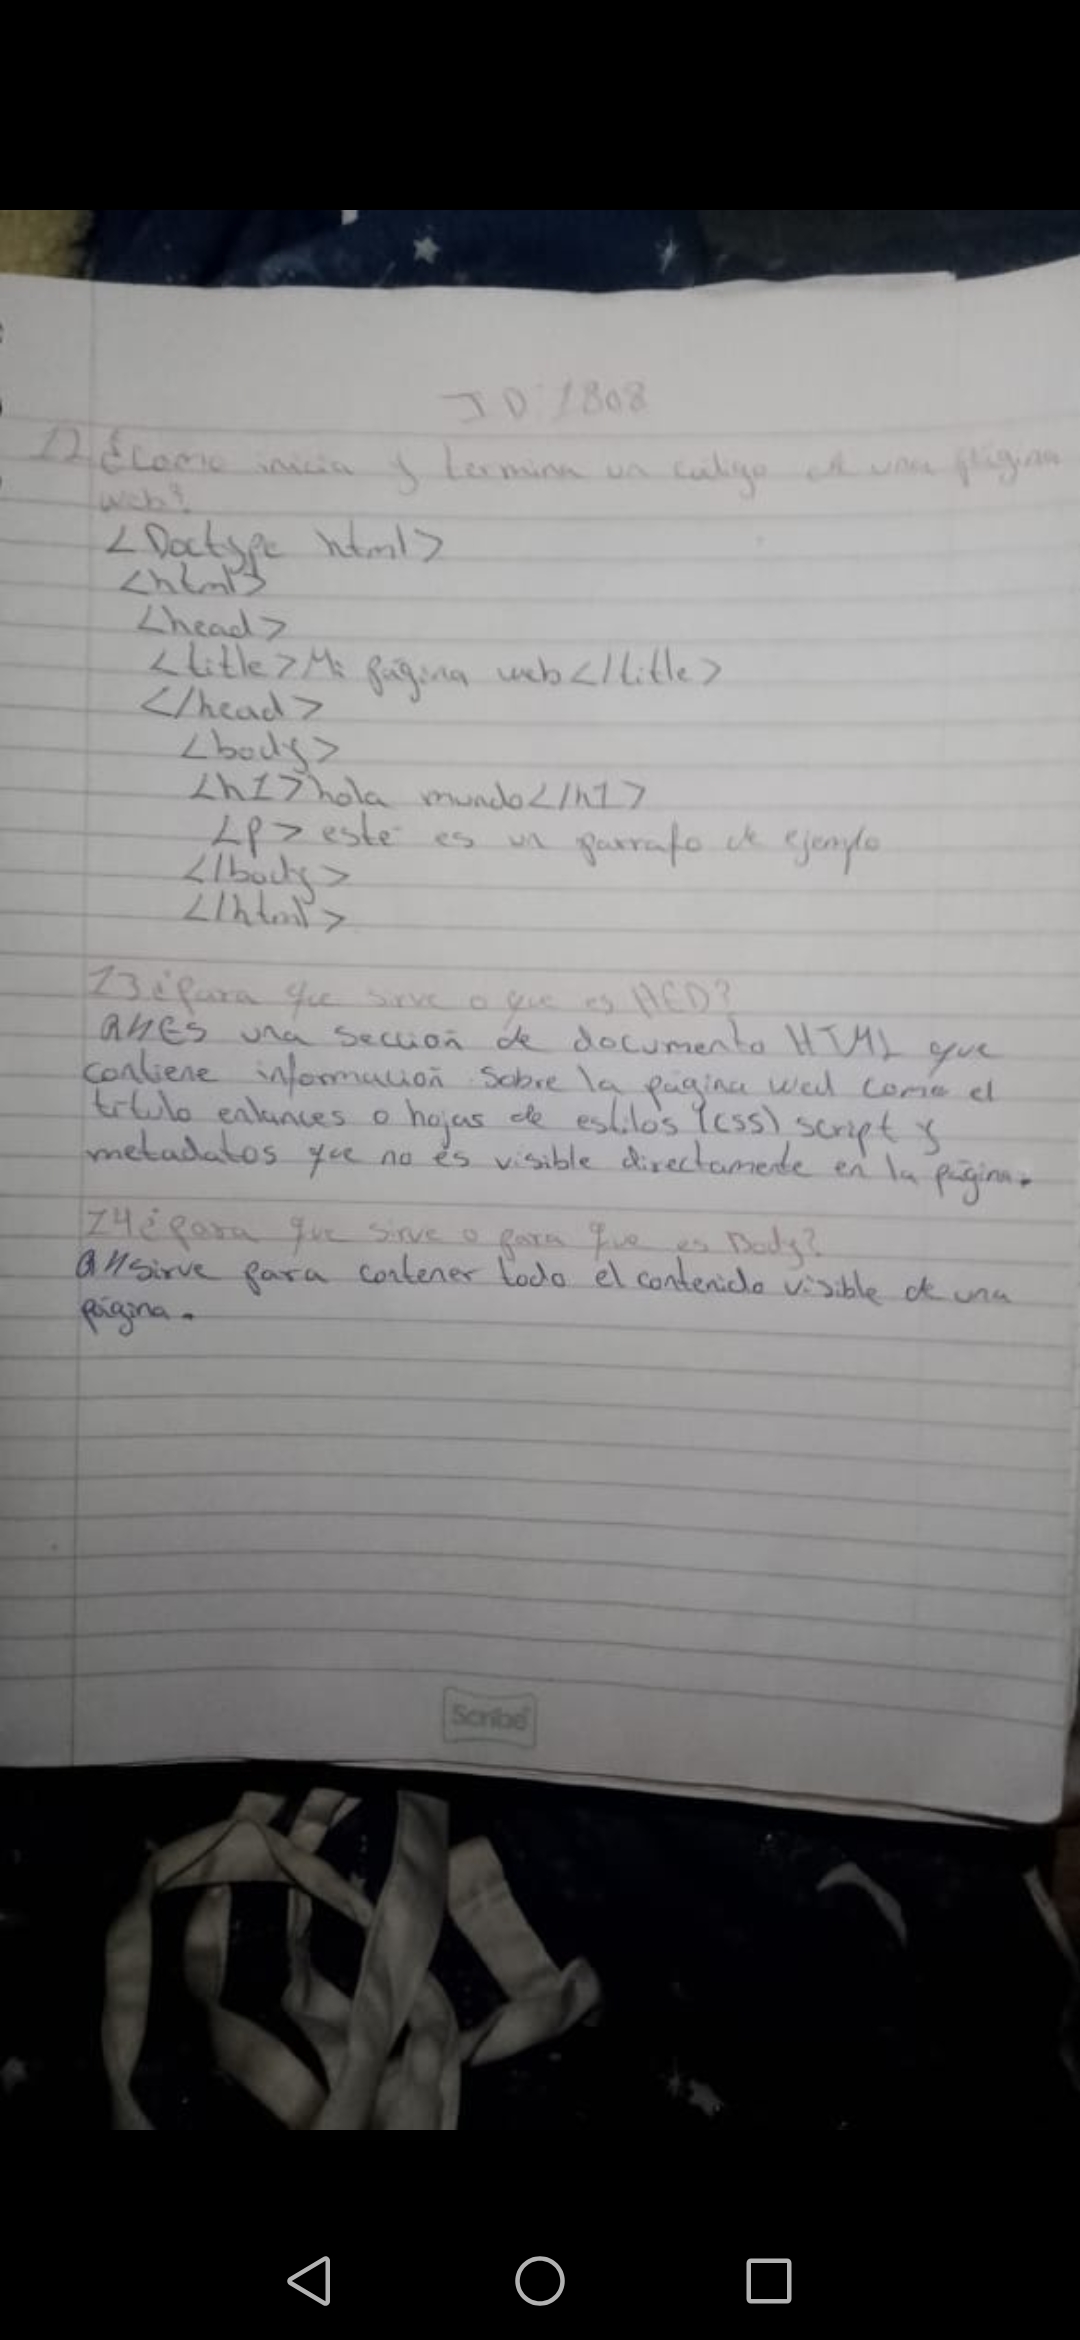 JD:1808
12 ¿Como inicia y termina un código de una página
web?
<Doctype html>
<html>
<head>
<title>Mi página web</title>
</head>
<body>
<h1>hola mundo</h1>
<p> este es un parrafo de ejemplo
</body>
</html>
13 ¿para que sirve o que es HED?
R//ES una sección de documento HTML que
contiene información sobre la página wed como el
titulo enlances o hojas de estilos (css) script y
metadatos que no es visible directamente en la página.
14 ¿para que sirve o para que es Body?
R//sirve para contener todo el contenido visible de una
página.
Scribe